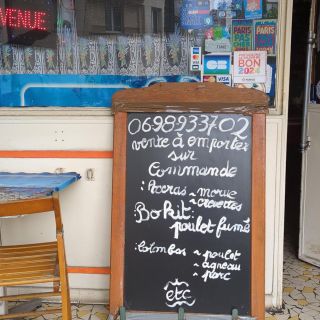 VENUE
PARIS
PARIS
VISA
BON
2024
0698933702
vente à emporter
sur
Commande
: Accras ~ morue
~ crevettes
Bokit :
poulet fumé
: Colombos ~ poulet
~ agneau
~ porc
etc